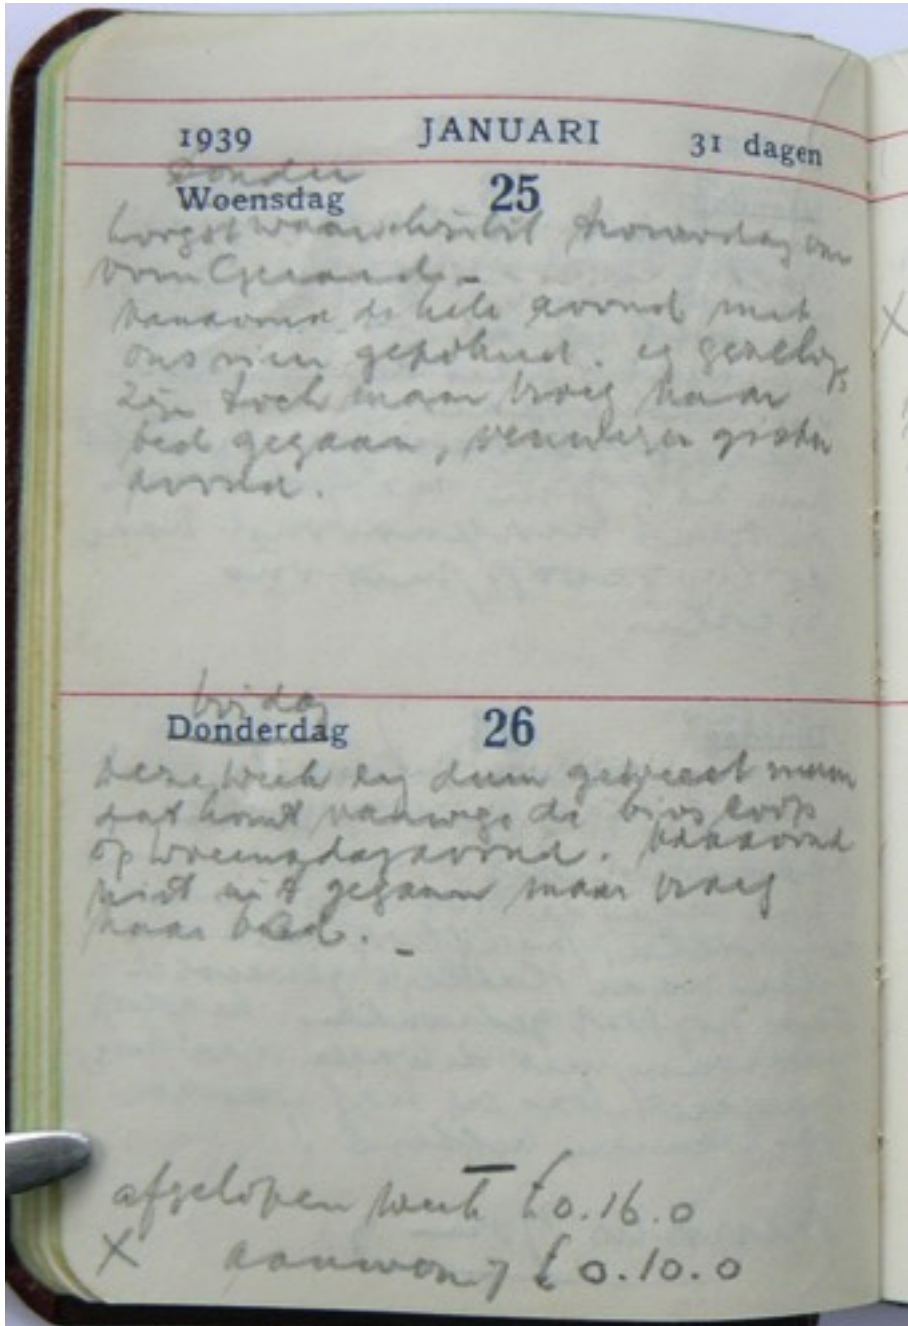 1939 JANUARI 31 dagen
Donder
Woensdag 25
trouwdag van
oom Gerard.
vanavond de hele avond met
ons vieren gepokerd. erg gezellig
zijn toch maar vroeg naar
bed gegaan, vanwege gister
avond.
vrijdag
Donderdag 26
deze week erg duur geweest maar
dat komt vanwege de bioscoop
op woensdagavond. vanavond
niet uit gegaan maar vroeg
naar bed.
afgelopen week £0.16.0
X £0.10.0